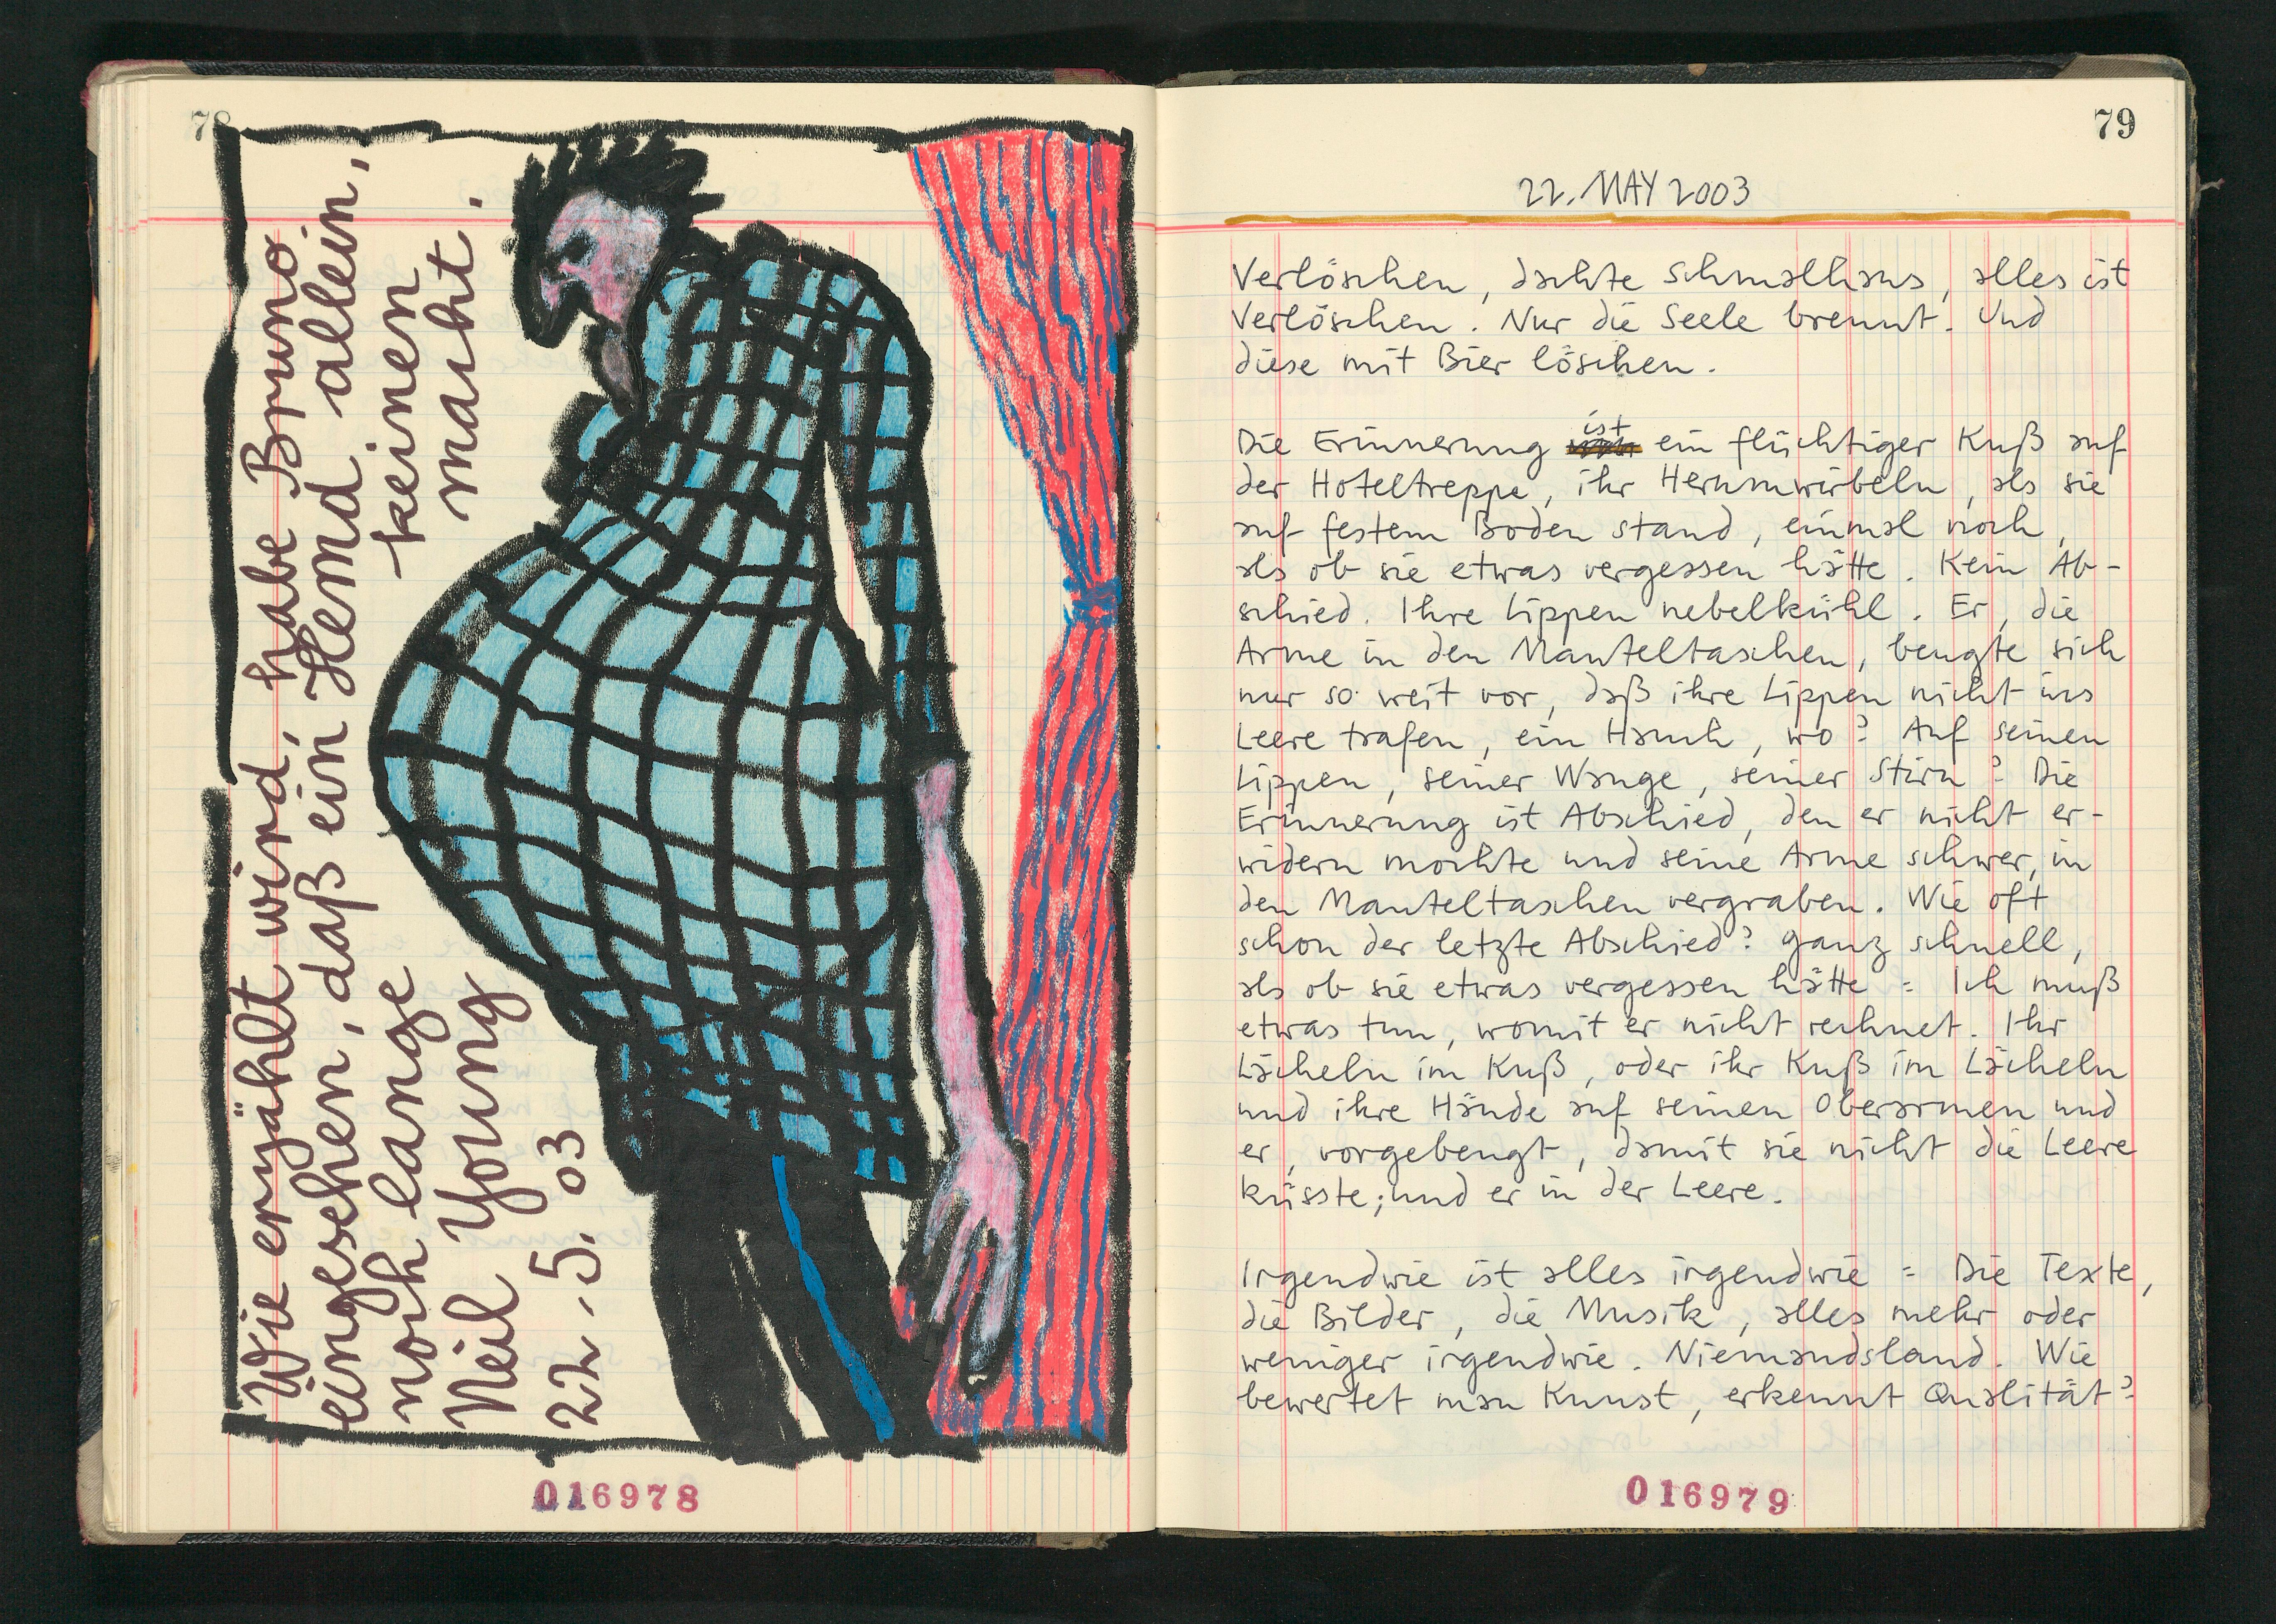 78
Wie erzählt wird, habe Bruno
eingesehen, daß ein Hemd allein,
noch lange keinen
Neil Young macht.
22.5.03
016978
79
22. MAY 2003
Verlöschen, dachte Schmalhans, alles ist
Verlöschen. Nur die Seele brennt. Und
diese mit Bier löschen.
Die Erinnerung ist ein flüchtiger Kuß auf
der Hoteltreppe, ihr Herumwirbeln, als sie
auf festem Boden stand, einmal noch,
als ob sie etwas vergessen hätte. Kein Ab-
schied. Ihre Lippen nebelkühl. Er, die
Arme in den Manteltaschen, beugte sich
nur so weit vor, daß ihre Lippen nicht ins
Leere trafen, ein Hauch, wo? Auf seinen
Lippen, seiner Wange, seiner Stirn? Die
Erinnerung ist Abschied, den er nicht er-
widern mochte und seine Arme schwer, in
den Manteltaschen vergraben. Wie oft
schon der letzte Abschied? Ganz schnell,
als ob sie etwas vergessen hätte = Ich muß
etwas tun, womit er nicht rechnet. Ihr
Lächeln im Kuß, oder ihr Kuß im Lächeln
und ihre Hände auf seinen Oberarmen und
er, vorgebeugt, damit sie nicht die Leere
küsste; und er in der Leere.
Irgendwie ist alles irgendwie = Die Texte,
die Bilder, die Musik, alles mehr oder
weniger irgendwie. Niemandsland. Wie
bewertet man Kunst, erkennt Qualität?
016979